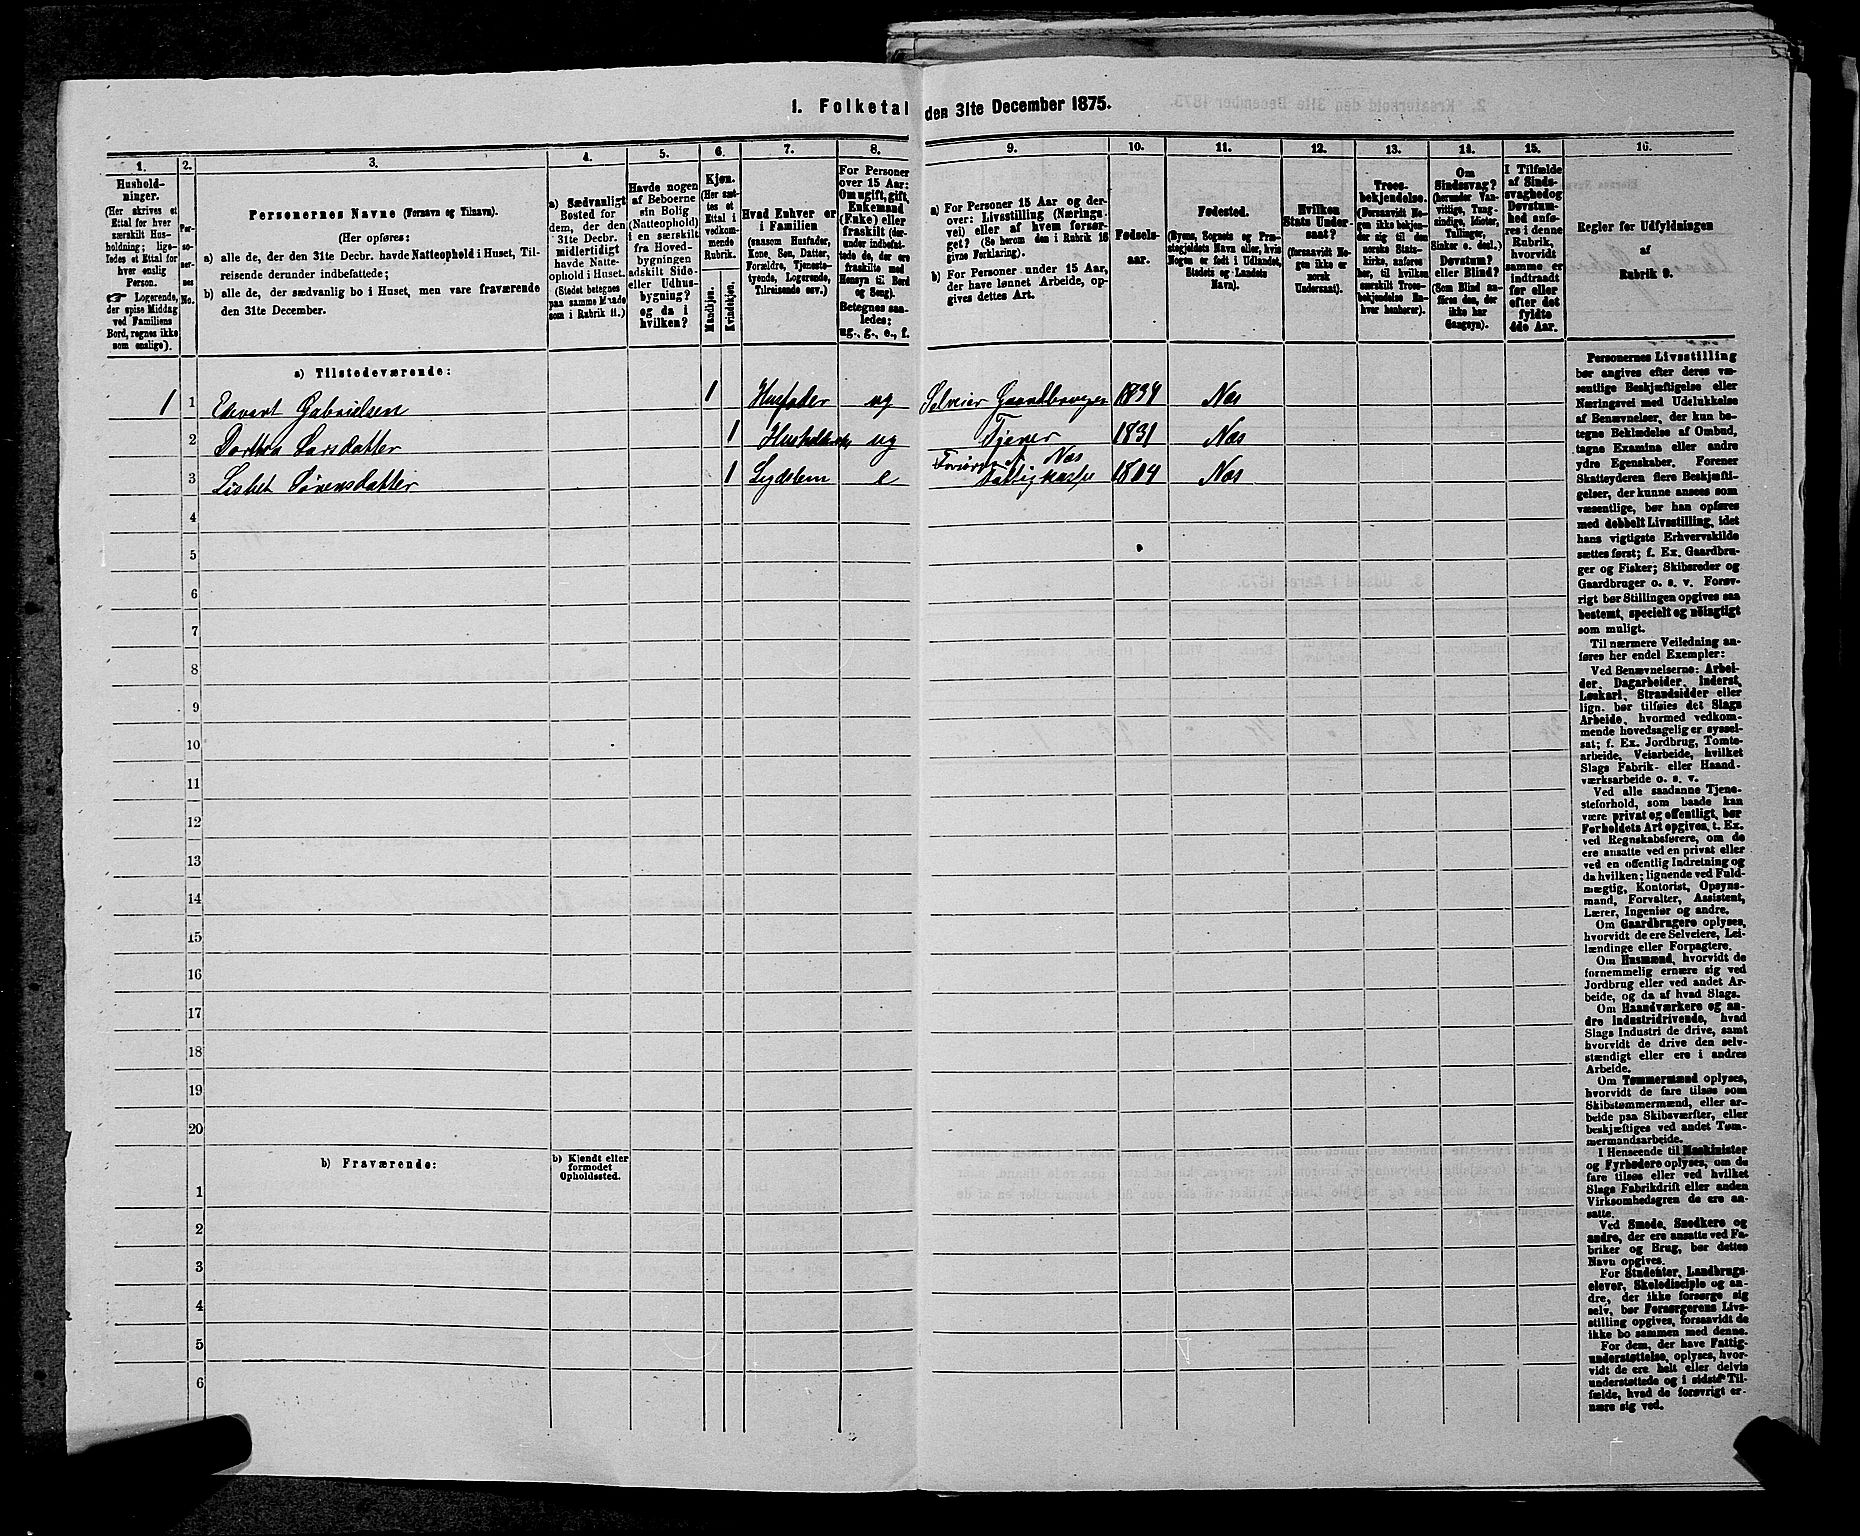 1. Folketal den 31te December 1875.
1.
2.
3.
4.
5.
6.
7.
8.
9.
10.
11.
12.
13.
14.
15.
16.
Hushold-
ninger.
(Her skrives et
Ettal for hver
særskilt Hus-
holdning; lige-
ledes et Ettal for
hver enslig
Person.
☞ Logerende,
der spise Middag
ved Familiens
Bord, regnes ikke
som enslige).
Per-
so-
ner-
nes
No.
Personernes Navne (Fornavn og Tilnavn).
(Her opføres:
a) alle de, der den 31te Decbr. havde Natteophold i Huset, Til-
reisende derunder indbefattede;
b) alle de, der sædvanlig bo i Huset, men vare fraværende
den 31te December.
a) Sædvanligt
Bosted for
dem, der den
31te Decbr.
midlertidigt
havde Natte-
ophold i Huset.
(Stedet betegnes
paa samme Maade
som i Rubrik 11.)
Havde nogen
af Beboerne
sin Bolig
(Natteophold)
i en særskilt
fra Hoved-
bygningen
adskilt Side-
eller Udhus-
bygning?
og da i
hvilken?
Kjøn.
(Her sæt-
tes et
Ettal i
vedkom-
mende
Rubrik.
Mandkjøn.
Kvindekjøn.
Hvad Enhver er
i Familien
(saasom Husfader,
Kone, Søn, Datter,
Forældre, Tjeneste-
tyende, Logerende,
Tilreisende osv.)
For Personer
over 15 Aar:
Om ugift, gift,
Enkemand
(Enke) eller
fraskilt (der-
under indbefat-
tede de, der ere
fraskilte med
Hensyn til Bord
og Seng).
Betegnes saa-
ledes:
ug., g., e., f.
a) For Personer 15 Aar og der-
over: Livsstilling (Nærings-
vei) eller af hvem forsør-
get? (Se herom den i Rubrik 16
givne Forklaring).
b) For Personer under 15 Aar,
der have lønnet Arbeide, op-
gives dettes Art.
Fødsels-
aar.
Fødested.
(Byens, Sognets og Præ-
stegjeldets Navn eller, hvis
Nogen er født i Udlandet,
Stedets og Landets
Navn).
Hvilken
Stats Under-
saat?
(forsaavidt No-
gen ikke er
norsk
Undersaat).
Troes-
bekjendelse.
(Forsaavidt No-
gen ikke bekjen-
der sig til den
norske Stats-
kirke, anføres
her, til hvilken
særskilt Troes-
bekjendelse En-
hver henhører).
Om
Sindssvag?
(herunder Van-
vittige, Tung-
sindige, Idioter,
Tullinger,
Sinker o. desl.)
Døvstum?
eller Blind?
(Som Blind an-
føres den, der
ikke har
Gangsyn).
I Tilfælde
af Sinds-
svaghed og
Døvstum-
hed anfø-
res i denne
Rubrik,
hvorvidt
samme er
indtraadt
før eller
efter det
fyldte
4de Aar.
Regler for Udfyldningen
af
Rubrik 9.
a) Tilstedeværende:
1 1 Edvart Gabrielsen 1 Husfader ug Selveier Gaardbruger 1834 Næs
2 Dorthea Larsdatter 1 ug Tjener 1831 Næs
3 Lisbet Sørensdatter 1 Legdslem e Næs Fattigkasse 1804 Næs
4
5
6
7
8
9
10
11
12
13
14
15
16
17
18
19
20
b) Fraværende:
b) Kjendt eller
formodet
Opholdssted.
1
2
3
4
5
6
Personernes Livsstilling
bør angives efter deres væ-
sentlige Beskjæftigelse eller
Næringsvei med Udelukkelse
af Benævnelser, der kun be-
tegne Beklædelse af Ombud,
tagne Examina eller andre
ydre Egenskaber. Forener
Skatteyderen flere Beskjæfti-
gelser, der kunne ansees som
væsentlige, bør han opføres
med dobbelt Livsstilling, idet
hans vigtigste Erhvervskilde
sættes først; f. Ex. Gaardbru-
ger og Fisker; Skibsreder og
Gaardbruger o. s. v. Forøv-
rigt bør Stillingen opgives saa
bestemt, specielt og nøiagtigt
som muligt.
Til nærmere Veiledning an-
føres her endel Exempler:
Ved Benævnelserne: Arbei-
der, Dagarbeider, Inderst,
Løskarl, Strandsidder eller
lign. bør tilføies det Slags
Arbeide, hvormed vedkom-
mende hovedsagelig er syssel-
sat; f. Ex. Jordbrug, Tomte-
arbeide, Veiarbeide, hvilket
Slags Fabrik- eller Haand-
værksarbeide o. s. v.
Ved alle saadanne Tjene-
steforhold, som baade kan
være privat og offentligt, bør
Forholdets Art opgives, t. Ex.
ved Regnskabsførere, om de
ere ansatte ved en privat eller
ved en offentlig Indretning og
da hvilken; lignende ved Fuld-
mægtig, Kontorist, Opsyns-
mand, Forvalter, Assistent,
Lærer, Ingeniør og andre.
Om Gaardbrugere oplyses,
hvorvidt de ere Selveiere, Lei-
lændinge eller Forpagtere.
Om Husmænd, hvorvidt de
fornemmelig ernære sig ved
Jordbrug eller ved andet Ar-
beide, og da af hvad Slags.
Om Haandværkere og an-
dre Industridrivende, hvad
Slags Industri de drive, samt
hvorvidt de drive den selv-
stændigt eller ere i andres
Arbeide.
Om Tømmermænd oplyses,
hvorvidt de fare tilsøs som
Skibstømmermænd, eller ar-
beide paa Skibsværfter, eller
beskjæftiges ved andet Tøm-
mermandsarbeide.
I Henseende til Maskinister
og Fyrbødere oplyses, om de
fare tilsøs eller ved hvilket
Slags Fabrikdrift eller anden
Virksomhedsgren de ere an-
satte.
Ved Smede, Snedkere og
andre, der ere ansatte ved Fa-
briker og Brug, bør dettes
Navn opgives.
For Studenter, Landbrugs-
elever, Skoledisciple og an-
dre, der ikke forsørge sig
selv, bør Forsørgerens Livs-
stilling opgives, forsaavidt de
ikke bo sammen med denne.
For dem, der have Fattig-
understøttelse, oplyses, hvor-
vidt de ere helt eller delvis
understøttede og i sidste Til-
fælde, hvad de forøvrigt er-
nære sig ved.